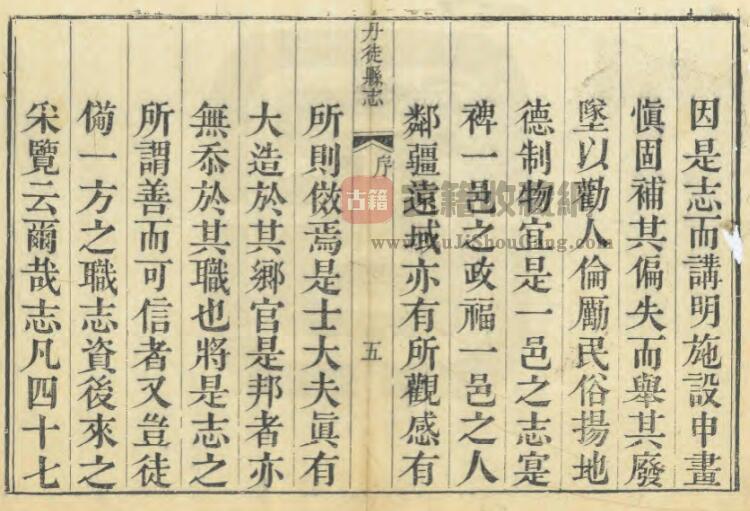 因是志而講明施設申畫
慎固補其偏失而舉其廢
墜以勸人倫勵民俗揚地
德制物宜是一邑之志寔
裨一邑之政福一邑之人
鄰疆遠域亦有所觀感有
丹徒縣志
序
五
所則傚焉是士大夫眞有
大造於其鄉官是邦者亦
無忝於其職也將是志之
所謂善而可信者又豈徒
備一方之職志資後來之
采覽云爾哉志凡四十七
古籍
古籍收藏網
www.GuJiShouCang.com